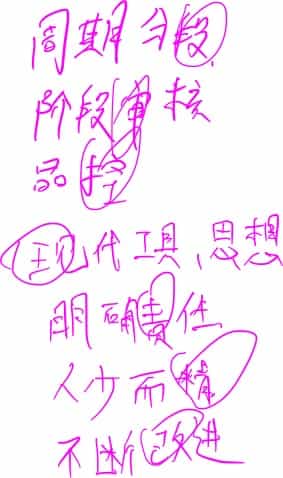 周期分段
阶段审核
品控
现代工具、思想
明确责任
人少而精
不断改进